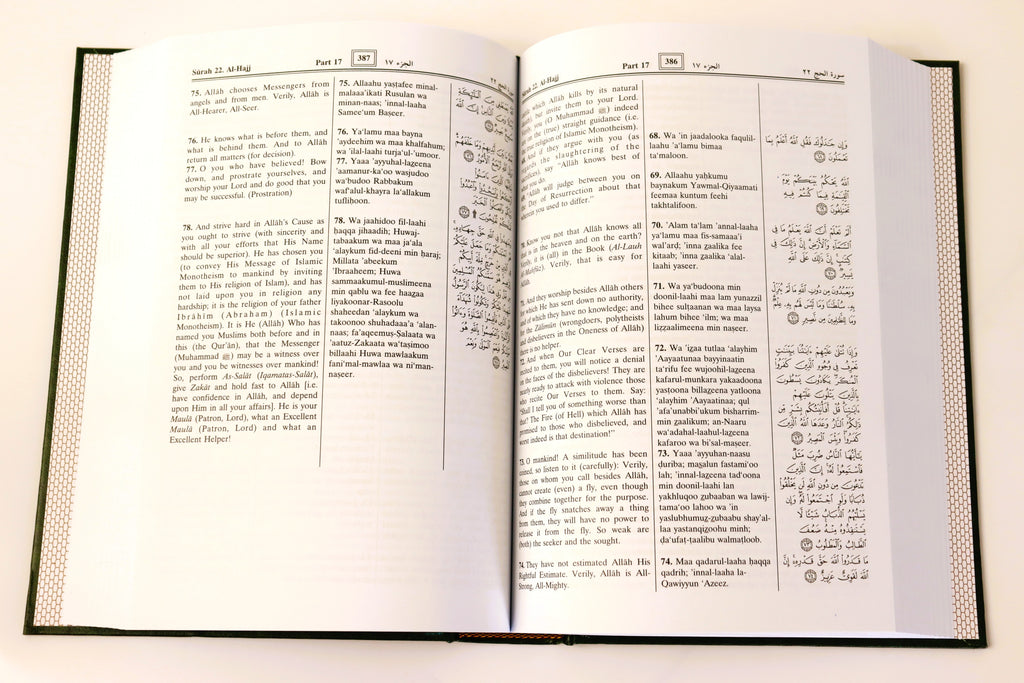 Sûrah 22. Al-Hajj
Part 17
387
الجزء ١٧
75. Allâh chooses Messengers from
angels and from men. Verily, Allâh is
All-Hearer, All-Seer.
76. He knows what is before them, and
what is behind them. And to Allâh
return all matters (for decision).
77. O you who have believed! Bow
down, and prostrate yourselves, and
worship your Lord and do good that you
may be successful. (Prostration)
78. And strive hard in Allâh's Cause as
you ought to strive (with sincerity and
with all your efforts that His Name
should be superior). He has chosen you
(to convey His Message of Islamic
Monotheism to mankind by inviting
them to His religion of Islam), and has
not laid upon you in religion any
hardship; it is the religion of your father
Ibrâhim (Abraham) (Islamic
Monotheism). It is He (Allâh) Who has
named you Muslims both before and in
this (the Qur'ân), that the Messenger
(Muhammad ﷺ) may be a witness over
you and you be witnesses over mankind!
So, perform As-Salât (Iqamatas-Salât),
give Zakât and hold fast to Allâh [i.e.
have confidence in Allâh, and depend
upon Him in all your affairs]. He is your
Maulâ (Patron, Lord), what an Excellent
Maulâ (Patron, Lord) and what an
Excellent Helper!
75. Allaahu yaṣtafee minal-
malaaa'ikati Rusulan wa
minan-naas; 'innal-laaha
Samee'um Baṣeer.
76. Ya'lamu maa bayna
'aydeehim wa maa khalfahum;
wa 'ilal-laahi turja'ul-'umoor.
77. Yaaa 'ayyuhal-lazeena
'aamanur-ka'oo wasjudoo
wa'budoo Rabbakum
waf'alul-khayra la'allakum
tufliḥoon.
78. Wa jaahidoo fil-laahi
ḥaqqa jihaadih; Huwaj-
tabaakum wa maa ja'ala
'alaykum fid-deeni min ḥaraj;
Millata 'abeekum
'Ibraaheem; Huwa
sammaakumul-muslimeena
min qablu wa fee haazaa
liyakoonar-Rasoolu
shaheedan 'alaykum wa
takoonoo shuhadaaa'a 'alan-
naas; fa'aqeemuṣ-Ṣalaata wa
'aatuz-Zakaata wa'taṣimoo
billaahi Huwa mawlaakum
fani'mal-mawlaa wa ni'man-
naṣeer.
Sûrah 22. Al-Hajj
Part 17
386
الجزء ١٧
سورة الحج ٢٢
which Allâh kills by its natural
but invite them to your Lord.
you (O Muhammad ﷺ) indeed
(true) straight guidance (i.e.
religion of Islamic Monotheism).
And if they argue with you (as
the slaughtering of the
say "Allâh knows best of
you do.
"Allâh will judge between you on
the Day of Resurrection about that
wherein you used to differ."
Know you not that Allâh knows all
that is in the heaven and on the earth?
Verily, it is (all) in the Book (Al-Lauh
Verily, that is easy for
Allâh.
And they worship besides Allâh others
for which He has sent down no authority,
and of which they have no knowledge; and
for the Zâlimûn (wrongdoers, polytheists
and disbelievers in the Oneness of Allâh)
there is no helper.
72. And when Our Clear Verses are
recited to them, you will notice a denial
on the faces of the disbelievers! They are
nearly ready to attack with violence those
who recite Our Verses to them. Say:
"Shall I tell you of something worse than
that? The Fire (of Hell) which Allâh has
promised to those who disbelieved, and
worst indeed is that destination!"
73. O mankind! A similitude has been
coined, so listen to it (carefully): Verily,
those on whom you call besides Allâh,
cannot create (even) a fly, even though
they combine together for the purpose.
And if the fly snatches away a thing
from them, they will have no power to
release it from the fly. So weak are
(both) the seeker and the sought.
74. They have not estimated Allâh His
Rightful Estimate. Verily, Allâh is All-
Strong, All-Mighty.
68. Wa 'in jaadalooka faqulil-
laahu 'a'lamu bimaa
ta'maloon.
69. Allaahu yaḥkumu
baynakum Yawmal-Qiyaamati
feemaa kuntum feehi
takhtalifoon.
70. 'Alam ta'lam 'annal-laaha
ya'lamu maa fis-samaaa'i
wal'ard; 'inna zaalika fee
kitaab; 'inna zaalika 'alal-
laahi yaseer.
71. Wa ya'budoona min
doonil-laahi maa lam yunazzil
bihee sulṭaanan wa maa laysa
lahum bihee 'ilm; wa maa
liẓẓaalimeena min naṣeer.
72. Wa 'iẓaa tutlaa 'alayhim
'Aayaatunaa bayyinaatin
ta'rifu fee wujoohil-lazeena
kafarul-munkara yakaadoona
yastoona billazeena yatloona
'alayhim 'Aayaatinaa; qul
'afa'unabbi'ukum bisharrim-
min zaalikum; an-Naaru
wa'adahal-laahul-lazeena
kafaroo wa bi'sal-maṣeer.
73. Yaaa 'ayyuhan-naasu
ḍuriba; maṣalun fastami'oo
lah; 'innal-lazeena tad'oona
min doonil-laahi lan
yakhluqoo zubaaban wa lawij-
tama'oo lahoo wa 'in
yaslubhumuz-zubaabu shay'al-
laa yastanqizoohu minh;
ḍa'ufaṭ-ṭaalibu walmaṭloob.
74. Maa qadarul-laaha ḥaqqa
qadrih; 'innal-laaha la-
Qawiyyun 'Azeez.
وَإِن جَٰدَلُوكَ فَقُلِ ٱللَّهُ أَعْلَمُ بِمَا
تَعْمَلُونَ
ٱللَّهُ يَحْكُمُ بَيْنَكُمْ يَوْمَ
ٱلْقِيَٰمَةِ فِيمَا كُنتُمْ فِيهِ
تَخْتَلِفُونَ
أَلَمْ تَعْلَمْ أَنَّ ٱللَّهَ يَعْلَمُ مَا فِى
ٱلسَّمَآءِ وَٱلْأَرْضِ إِنَّ ذَٰلِكَ فِى
كِتَٰبٍ إِنَّ ذَٰلِكَ عَلَى ٱللَّهِ
يَسِيرٌ
وَيَعْبُدُونَ مِن دُونِ ٱللَّهِ مَا لَمْ يُنَزِّلْ
بِهِۦ سُلْطَٰنًا وَمَا لَيْسَ لَهُم بِهِۦ عِلْمٌ
وَمَا لِلظَّٰلِمِينَ مِن نَّصِيرٍ
وَإِذَا تُتْلَىٰ عَلَيْهِمْ ءَايَٰتُنَا بَيِّنَٰتٍ
تَعْرِفُ فِى وُجُوهِ ٱلَّذِينَ كَفَرُوا۟
ٱلْمُنكَرَ يَكَادُونَ يَسْطُونَ
بِٱلَّذِينَ يَتْلُونَ عَلَيْهِمْ
ءَايَٰتِنَا قُلْ أَفَأُنَبِّئُكُم بِشَرٍّ مِّن
ذَٰلِكُمُ ٱلنَّارُ وَعَدَهَا ٱللَّهُ ٱلَّذِينَ
كَفَرُوا۟ وَبِئْسَ ٱلْمَصِيرُ
يَٰٓأَيُّهَا ٱلنَّاسُ ضُرِبَ مَثَلٌ
فَٱسْتَمِعُوا۟ لَهُۥٓ إِنَّ ٱلَّذِينَ
تَدْعُونَ مِن دُونِ ٱللَّهِ لَن يَخْلُقُوا۟
ذُبَابًا وَلَوِ ٱجْتَمَعُوا۟ لَهُۥ وَإِن
يَسْلُبْهُمُ ٱلذُّبَابُ شَيْـًٔا لَّا
يَسْتَنقِذُوهُ مِنْهُ ضَعُفَ
ٱلطَّالِبُ وَٱلْمَطْلُوبُ
مَا قَدَرُوا۟ ٱللَّهَ حَقَّ قَدْرِهِۦٓ إِنَّ
ٱللَّهَ لَقَوِىٌّ عَزِيزٌ